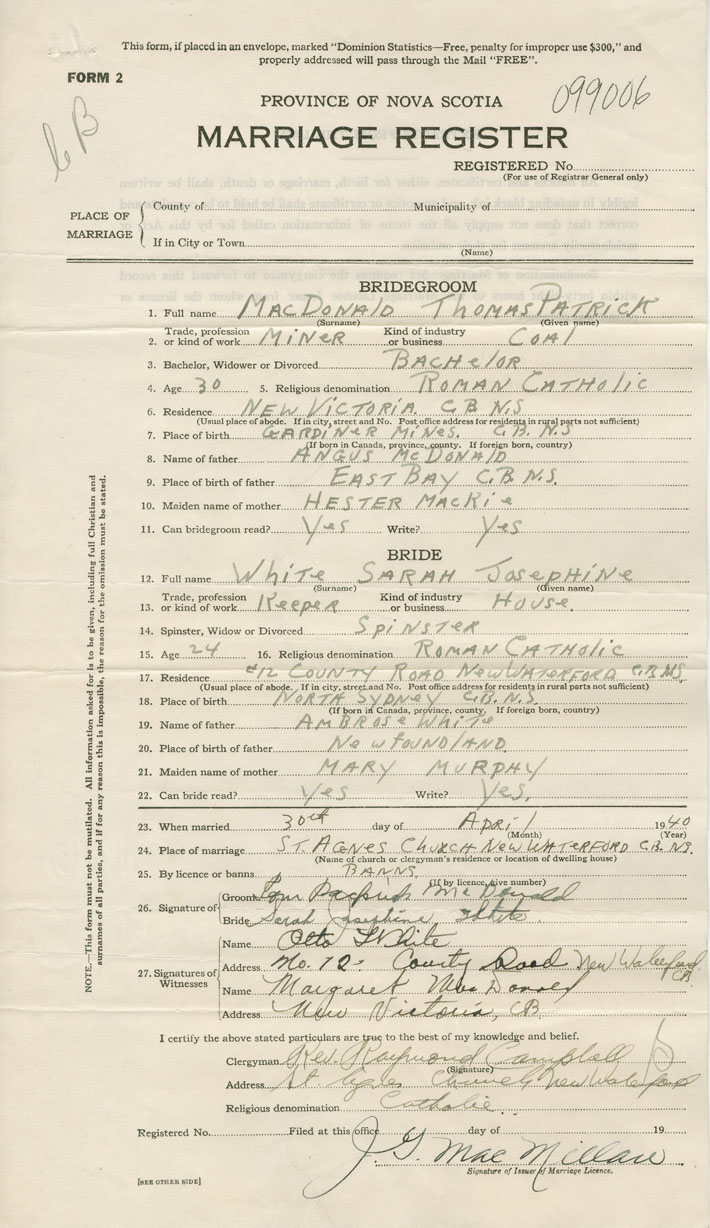 This form, if placed in an envelope, marked "Dominion Statistics—Free, penalty for improper use $300," and
properly addressed will pass through the Mail "FREE".
FORM 2
PROVINCE OF NOVA SCOTIA
099006
CB
MARRIAGE REGISTER
REGISTERED No.
(For use of Registrar General only)
PLACE OF MARRIAGE
County of Municipality of
If in City or Town
(Name)
BRIDEGROOM
1. Full name MacDonald Thomas Patrick
(Surname) (Given name)
2. Trade, profession or kind of work Miner Kind of industry or business Coal
3. Bachelor, Widower or Divorced Bachelor
4. Age 30 5. Religious denomination Roman Catholic
6. Residence New Victoria C.B. N.S
(Usual place of abode. If in city, street and No. Post office address for residents in rural parts not sufficient)
7. Place of birth Gardiner Mines. C.B. N.S
(If born in Canada, province, county. If foreign born, country)
8. Name of father Angus McDonald
9. Place of birth of father East Bay C.B. N.S.
10. Maiden name of mother Hester MacKie
11. Can bridegroom read? Yes Write? Yes
BRIDE
12. Full name White Sarah Josephine
(Surname) (Given name)
13. Trade, profession or kind of work Keeper Kind of industry or business House.
14. Spinster, Widow or Divorced Spinster
15. Age 24 16. Religious denomination Roman Catholic
17. Residence #12 County Road New Waterford C.B. N.S.
(Usual place of abode. If in city, street and No. Post office address for residents in rural parts not sufficient)
18. Place of birth North Sydney C.B. N.S.
(If born in Canada, province, county. If foreign born, country)
19. Name of father Ambrose White
20. Place of birth of father Newfoundland
21. Maiden name of mother Mary Murphy
22. Can bride read? Yes Write? Yes.
23. When married 30th day of April 1940
(Month) (Year)
24. Place of marriage St. Agnes Church New Waterford C.B. N.S.
(Name of church or clergyman's residence or location of dwelling house)
25. By licence or banns Banns
(If by licence, give number)
26. Signature of Groom Tom Patrick McDonald
Bride Sarah Josephine White.
27. Signatures of Witnesses
Name Otto White
Address No. 12 County Road New Waterford CB.
Name Margaret MacDonald
Address New Victoria, CB
I certify the above stated particulars are true to the best of my knowledge and belief.
Clergyman Rev. Raymond Campbell
(Signature)
Address St. Agnes Church New Waterford
Religious denomination Catholic
Registered No. Filed at this office day of 19
J. G. MacMillan
Signature of Issuer of Marriage Licence.
[SEE OTHER SIDE]
NOTE.—This form must not be mutilated. All information asked for is to be given, including full Christian and
surnames of all parties, and if for any reason this is impossible, the reason for the omission must be stated.